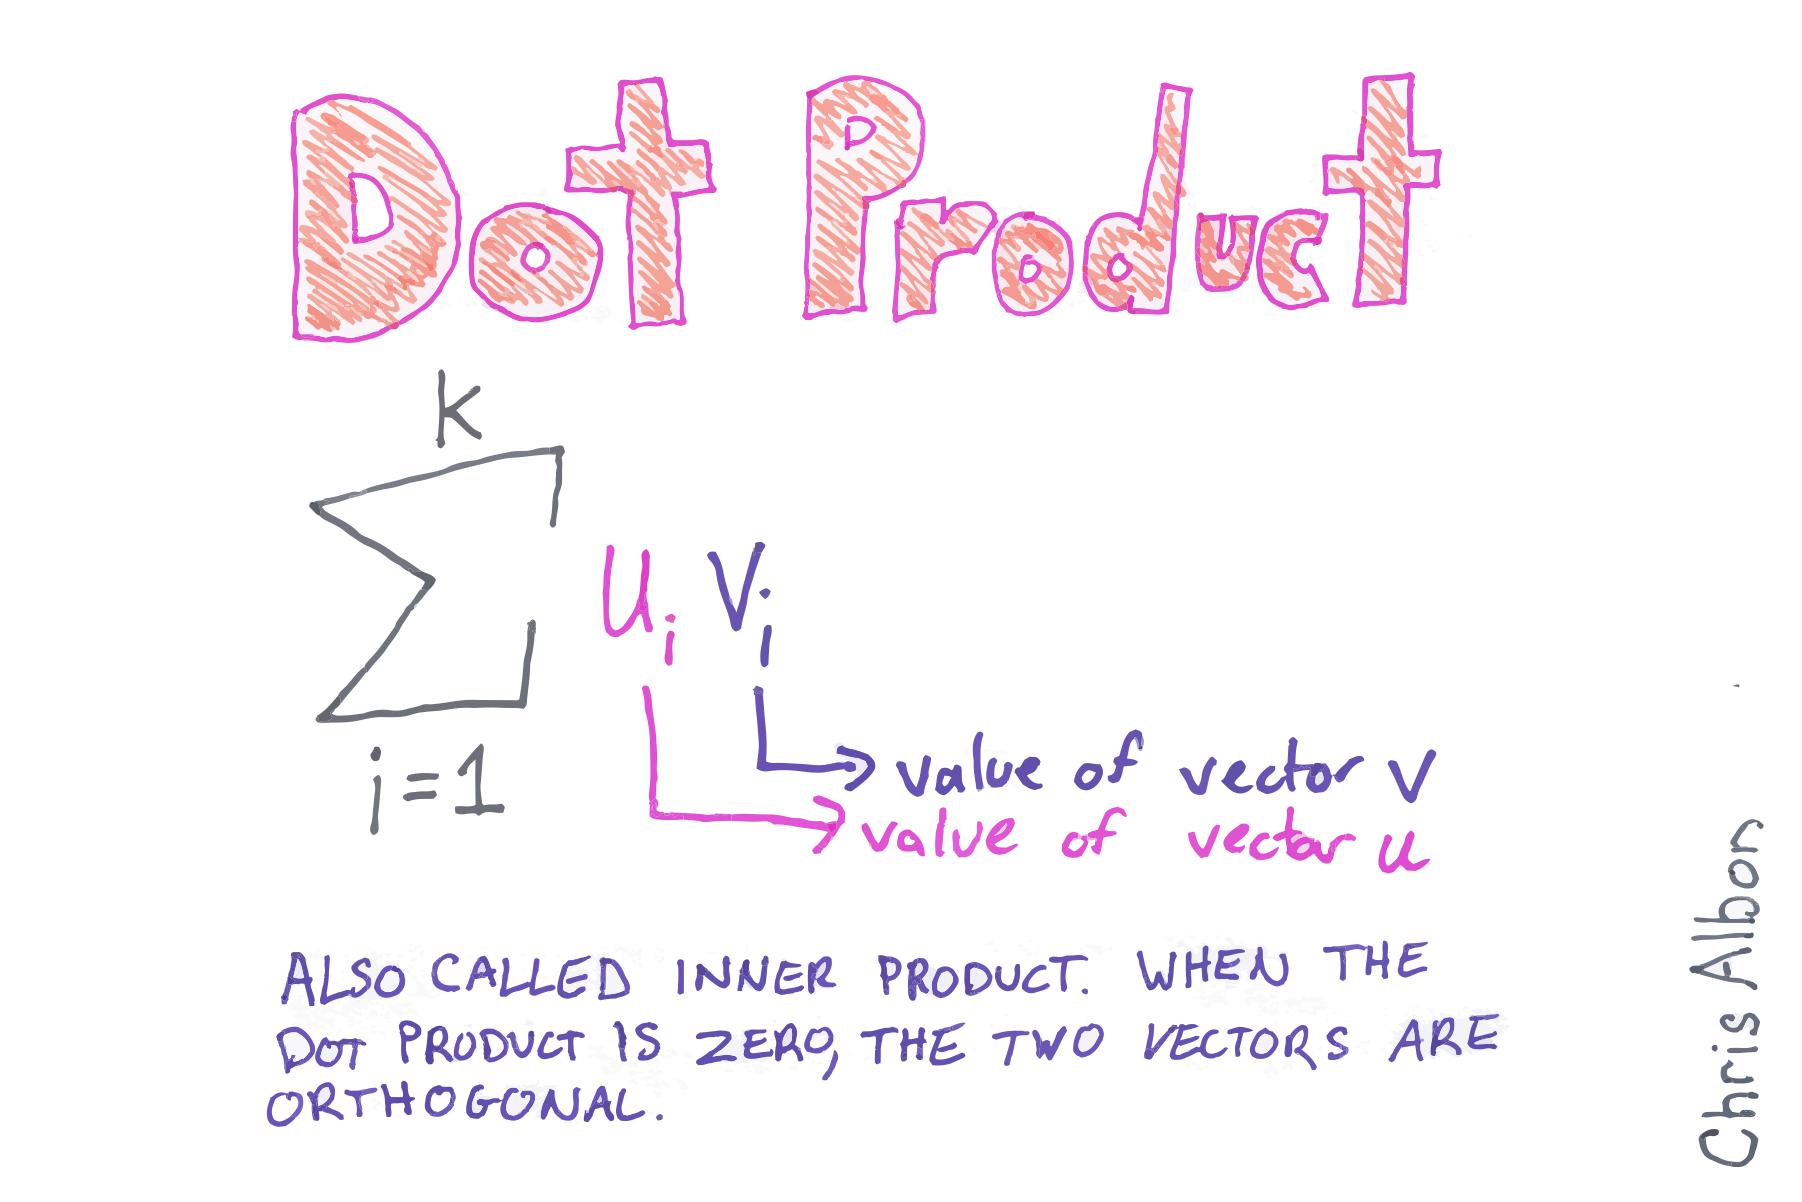 Dot Product
k
Σ uᵢ vᵢ
i=1
value of vector v
value of vector u
ALSO CALLED INNER PRODUCT. WHEN THE
DOT PRODUCT IS ZERO, THE TWO VECTORS ARE
ORTHOGONAL.
Chris Albon